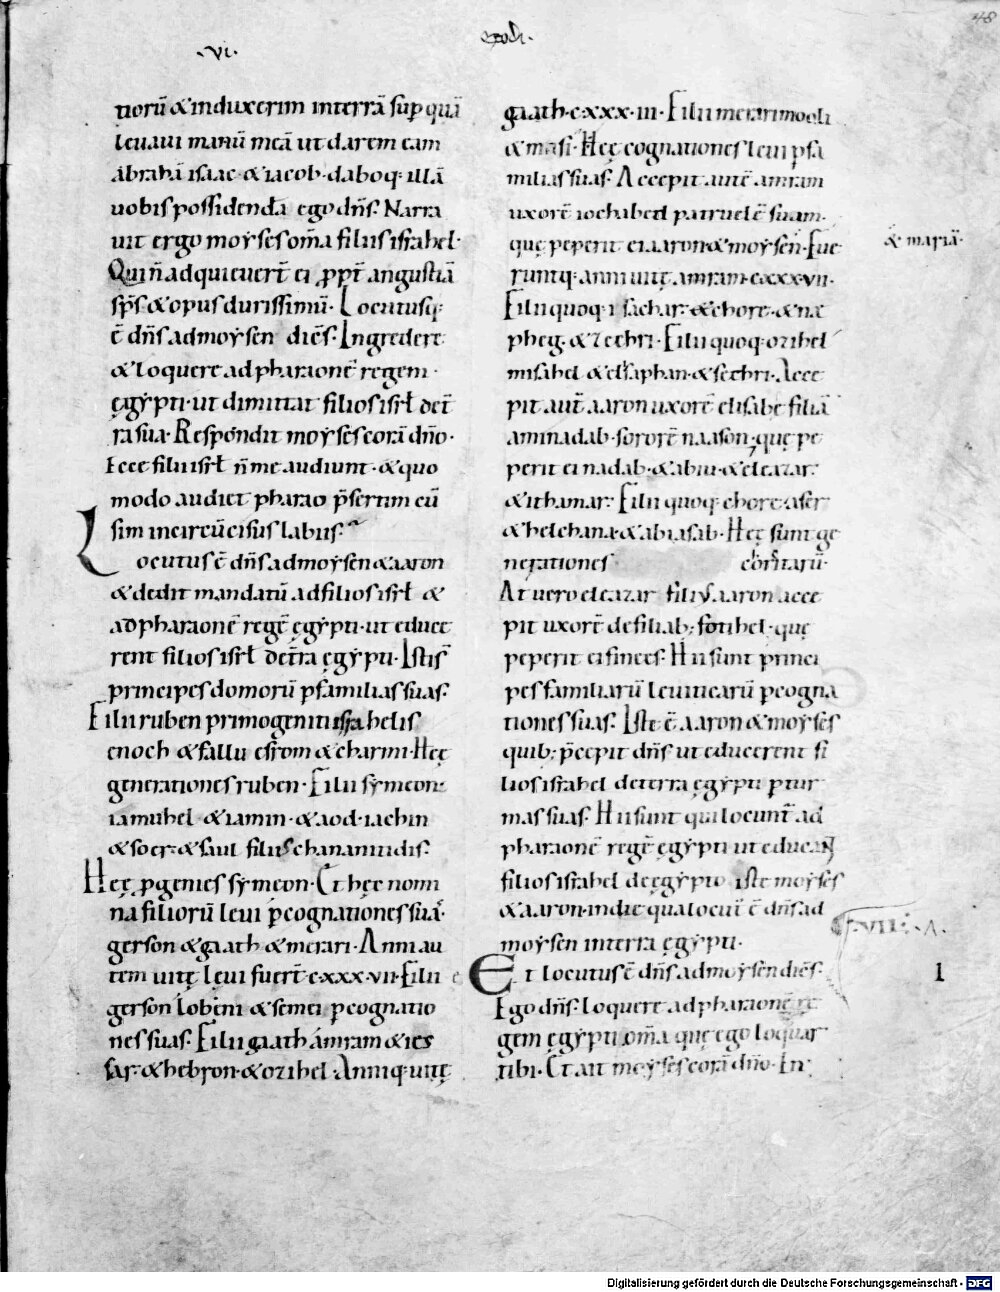 ·vi·
exodi·
48
tiorū & induxerim interrā sup quā
levavi manū meā ut darem eam
abrahā isaac & iacob· daboq; illā
uobis possidendā ego dn̄s· Narra
uit ergo moẏses om̄a filiis israhel·
Qui n̄ adquieuert̄ ei ꝓpt̄ angustiā
sp̄s & opus durissimū· Locutusq;
ē dn̄s ad moẏsen dicēs· Ingredere
& loquere ad pharaonē regem·
ęgẏpti· ut dimittat filios isrł det̄
ra sua· Respondit moẏses corā dn̄o·
Ecce filii isrł n̄ me audiunt· & quo
modo audiet pharao p̄sertim cū
sim incircūcisus labiis·
Locutus ē dn̄s ad moẏsen & aaron
& dedit mandatū ad filios isrł &
ad pharaonē regē ęgẏpti· ut educe
rent filios isrł det̄ra ęgẏpti· Isti s̄
principes domorū p familias suas·
Filii ruben primogeniti israhelis
enoch & fallu esrom & charmi· Hęę
generationes ruben· Filii sẏmeon:
iamuhel· & iamin· & aod· iachin
& soer· & saul filius chananitidis·
Hęę ꝓgenies sẏmeon· Et hęe nomi
na filiorū leui p cognationes suā·
gerson & gaath & merari· Anni au
tem uitę leui fuert̄ c·xxx·vii· Filii
gerson lobeni & semei p cognatio
nes suas· Filii gaath amram & ies
sar· & hebron· & ozihel Anniq; uitę
gaath· c·xxx·iii· Filii merari mooli
& masi· Hęę cognationes leui p fa
milias suas· Accepit autē amram
uxorē iochabed patruelē suam·
quę peperit ei aaron & moẏsen· Fue
& mariā·
runtq; anni uitę amram· cxxx·vii·
Filii quoq; isachar· & chore· & na
pheg· & zechri· Filii quoq; ozihel
misahel & elsaphan· & sethri· Acce
pit aut̄ aaron uxorē elisabe filiā
aminadab· sororē naason· quę pe
perit ei nadab· & abiu· & eleazar·
& ithamar· Filii quoq; chore aser
& helchana· & abiasab· Hęę sunt ge
nerationes choritarū·
At uero eleazar filius aaron acce
pit uxorē de filiab; fotihel· quę
peperit ei finees· Hii sunt princi
pes familiarū leuiticarū p cogna
tiones suas· Iste ē aaron & moẏses
quib; p̄cepit dn̄s ut educerent fi
lios israhel deterra ęgẏpti p tur
mas suas· Hii sunt qui locunt̄ ad
pharaonē regē ęgẏpti ut educant
filios israhel de ęgẏpto iste moẏses
& aaron· in die qua locut̄ ē dn̄s ad
moẏsen interra ęgẏpti·
·VII· ·A·
Et locutus ē dn̄s ad moẏsen diēs·
1
Ego dn̄s· loquere ad pharaonē re
gem ęgẏpti om̄a quę ego loquar
tibi· Et ait moẏses corā dn̄o· In
Digitalisierung gefördert durch die Deutsche Forschungsgemeinschaft - DFG